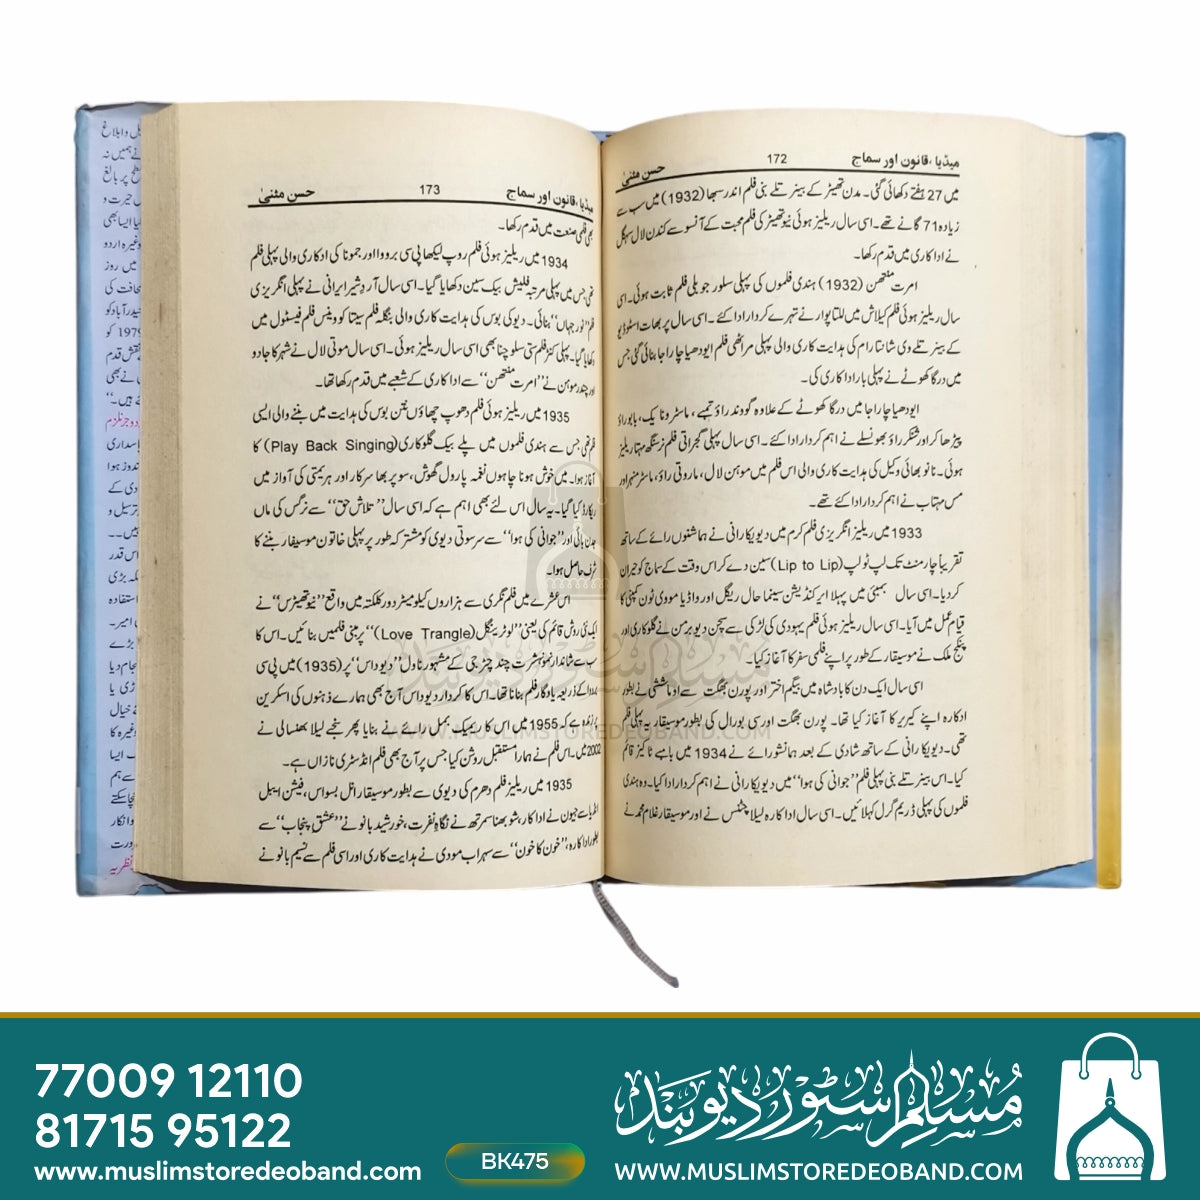 میڈیا، قانون اور سماج 172 حسن مثنیٰ
میں 27 ہفتے دکھائی گئی۔ مدن تھیٹر کے بینر تلے بنی فلم اندر سبھا (1932) میں سب سے
زیادہ 71 گانے تھے۔ اسی سال ریلیز ہوئی نیو تھیٹر کی فلم محبت کے آنسو سے کندن لال سہگل
نے اداکاری میں قدم رکھا۔
امرت منتھن (1932) ہندی فلموں کی پہلی سلور جوبلی فلم ثابت ہوئی۔ اسی
سال ریلیز ہوئی فلم کیلاش میں للتا پوار نے تہرے کردار ادا کئے۔ اسی سال پربھات اسٹوڈیو
کے بینر تلے وی شانتارام کی ہدایت کاری والی پہلی مراٹھی فلم ایودھیا چا راجا بنائی گئی جس
میں درگا کھوٹے نے پہلی بار اداکاری کی۔
ایودھیا چا راجا میں درگا کھوٹے کے علاوہ گووند راؤ تیمبے، ماسٹر ونایک، بابو راؤ
پیڑھا کر اور شنکر راؤ بھونسلے نے اہم کردار ادا کئے۔ اسی سال پہلی گجراتی فلم نرسنگھ مہتا ریلیز
ہوئی۔ نانو بھائی وکیل کی ہدایت کاری والی اس فلم میں موہن لال، ماروتی راؤ، ماسٹر منہر اور
مس مہتاب نے اہم کردار ادا کئے تھے۔
1933 میں ریلیز انگریزی فلم کرم میں دیویکا رانی نے ہمانشو رائے کے ساتھ
تقریباً چار منٹ تک لپ ٹو لپ (Lip to Lip) سین دے کر اس وقت کے سماج کو حیران
کر دیا۔ اسی سال بمبئی میں پہلا ایرکنڈیشن سینما حال ریگل اور واڈیا مووی ٹون کمپنی کا
قیام عمل میں آیا۔ اسی سال ریلیز ہوئی فلم یہودی کی لڑکی سے سچن دیو برمن نے گلوکاری اور
پنکج ملک نے موسیقار کے طور پر اپنے فلمی سفر کا آغاز کیا۔
اسی سال ایک دن کا بادشاہ میں بیگم اختر اور پورن بھگت سے اوما ششی نے بطور
اداکارہ اپنے کیریر کا آغاز کیا تھا۔ پورن بھگت اور سی بورال کی بطور موسیقار یہ پہلی فلم
تھی۔ دیویکا رانی کے ساتھ شادی کے بعد ہمانشو رائے نے 1934 میں بامبے ٹاکیز قائم
کیا۔ اس بینر تلے بنی پہلی فلم ’’جوانی کی ہوا‘‘ میں دیویکا رانی نے اہم کردار ادا کیا۔ وہ ہندی
فلموں کی پہلی ڈریم گرل کہلائیں۔ اسی سال اداکارہ لیلا چٹنس نے اور موسیقار غلام محمد نے
میڈیا، قانون اور سماج 173 حسن مثنیٰ
بھی فلمی صنعت میں قدم رکھا۔
1934 میں ریلیز ہوئی فلم روپ لیکھا پی سی برووا اور جمونا کی اداکاری والی پہلی فلم
تھی جس میں پہلی مرتبہ فلیش بیک سین دکھایا گیا۔ اسی سال آردِشیر ایرانی نے پہلی انگریزی
فلم ’’نور جہاں‘‘ بنائی۔ دیوکی بوس کی ہدایت کاری والی بنگلہ فلم سیتا کو وینس فلم فیسٹول میں
دکھایا گیا۔ پہلی کنڑ فلم ستی سلوچنا بھی اسی سال ریلیز ہوئی۔ اسی سال موتی لال نے شہر کا جادو
اور چندر موہن نے ’’امرت منتھن‘‘ سے اداکاری کے شعبے میں قدم رکھا تھا۔
1935 میں ریلیز ہوئی فلم دھوپ چھاؤں نتن بوس کی ہدایت میں بننے والی ایسی
فلم تھی جس سے ہندی فلموں میں پلے بیک گلوکاری (Play Back Singing) کا
آغاز ہوا۔ میں خوش ہونا چاہوں نغمہ پارول گھوش، سوپربھا سرکار اور ہریمتی کی آواز میں
ریکارڈ کیا گیا۔ یہ سال اس لئے بھی اہم ہے کہ اسی سال ’’تلاش حق‘‘ سے نرگس کی ماں
جدن بائی اور ’’جوانی کی ہوا‘‘ سے سرسوتی دیوی کو مشترکہ طور پر پہلی خاتون موسیقار بننے کا
شرف حاصل ہوا۔
اس عشرے میں فلم نگری سے ہزاروں کیلومیٹر دور کلکتہ میں واقع ’’نیو تھیٹرس‘‘ نے
ایک نئی روش قائم کی یعنی ’’لو ٹرینگل (Love Trangle)‘‘ پر مبنی فلمیں بنائیں۔ اس کا
سب سے شاندار نمونہ شرت چندر چٹرجی کے مشہور ناول ’’دیوداس‘‘ پر (1935) میں پی سی
بروا کے ذریعہ یادگار فلم بنانا تھا۔ اس کا کردار دیوداس آج بھی ہمارے ذہنوں کی اسکرین
پر زندہ ہے کہ 1955 میں اس کا ریمیک بمل رائے نے بنایا پھر سنجے لیلا بھنسالی نے
2002 میں۔ اس فلم نے ہمارا مستقبل روشن کیا جس پر آج بھی فلم انڈسٹری نازاں ہے۔
1935 میں ریلیز فلم دھرم کی دیوی سے بطور موسیقار انل بسواس، فیشن ایبل
انڈیا سے جیون نے اداکار، شوبھنا سمرتھ نے نگاہِ نفرت، خورشید بانو نے ’’عشق پنجاب‘‘ سے
بطور اداکارہ، ’’خون کا خون‘‘ سے سہراب مودی نے ہدایت کاری اور اسی فلم سے نسیم بانو نے
WWW.MUSLIMSTOREDEOBAND.COM
77009 12110
81715 95122
www.muslimstoredeoband.com
BK475
مسلم سٹور دیوبند
WWW.MUSLIMSTOREDEOBAND.COM